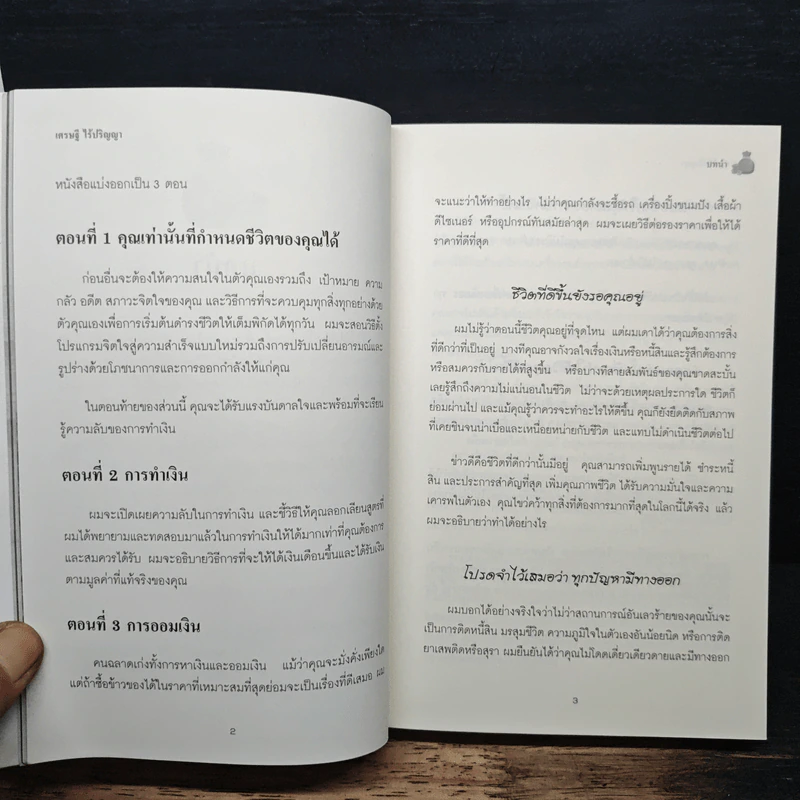 เศรษฐี ไร้ปริญญา
หนังสือแบ่งออกเป็น 3 ตอน
ตอนที่ 1 คุณเท่านั้นที่กำหนดชีวิตของคุณได้
ก่อนอื่นจะต้องให้ความสนใจในตัวคุณเองรวมถึง เป้าหมาย ความ
กลัว อดีต สภาวะจิตใจของคุณ และวิธีการที่จะควบคุมทุกสิ่งทุกอย่างด้วย
ตัวคุณเองเพื่อการเริ่มต้นดำรงชีวิตให้เต็มพิกัดได้ทุกวัน ผมจะสอนวิธีตั้ง
โปรแกรมจิตใจสู่ความสำเร็จแบบใหม่รวมถึงการปรับเปลี่ยนอารมณ์และ
รูปร่างด้วยโภชนาการและการออกกำลังให้แก่คุณ
ในตอนท้ายของส่วนนี้ คุณจะได้รับแรงบันดาลใจและพร้อมที่จะเรียน
รู้ความลับของการทำเงิน
ตอนที่ 2 การทำเงิน
ผมจะเปิดเผยความลับในการทำเงิน และชี้วิธีให้คุณลอกเลียนสูตรที่
ผมได้พยายามและทดสอบมาแล้วในการทำเงินให้ได้มากเท่าที่คุณต้องการ
และสมควรได้รับ ผมจะอธิบายวิธีการที่จะให้ได้เงินเดือนขึ้นและได้รับเงิน
ตามมูลค่าที่แท้จริงของคุณ
ตอนที่ 3 การออมเงิน
คนฉลาดเก่งทั้งการหาเงินและออมเงิน แม้ว่าคุณจะมั่งคั่งเพียงใด
แต่ถ้าซื้อข้าวของได้ในราคาที่เหมาะสมที่สุดย่อมจะเป็นเรื่องที่ดีเสมอ ผม
2
บทนำ
จะแนะว่าให้ทำอย่างไร ไม่ว่าคุณกำลังจะซื้อรถ เครื่องปิ้งขนมปัง เสื้อผ้า
ดีไซเนอร์ หรืออุปกรณ์ทันสมัยล่าสุด ผมจะเผยวิธีต่อรองราคาเพื่อให้ได้
ราคาที่ดีที่สุด
ชีวิตที่ดีขึ้นยังรอคุณอยู่
ผมไม่รู้ว่าตอนนี้ชีวิตคุณอยู่ที่จุดไหน แต่ผมเดาได้ว่าคุณต้องการสิ่ง
ที่ดีกว่าที่เป็นอยู่ บางทีคุณอาจกังวลใจเรื่องเงินหรือหนี้สินและรู้สึกต้องการ
หรือสมควรกับรายได้ที่สูงขึ้น หรือบางทีสายสัมพันธ์ของคุณขาดสะบั้น
เลยรู้สึกถึงความไม่แน่นอนในชีวิต ไม่ว่าจะด้วยเหตุผลประการใด ชีวิตก็
ย่อมผ่านไป และแม้คุณรู้ว่าควรจะทำอะไรให้ดีขึ้น คุณก็ยังยึดติดกับสภาพ
ที่เคยชินจนน่าเบื่อและเหนื่อยหน่ายกับชีวิต และแทบไม่ดำเนินชีวิตต่อไป
ข่าวดีคือชีวิตที่ดีกว่านั้นมีอยู่ คุณสามารถเพิ่มพูนรายได้ ชำระหนี้
สิน และประการสำคัญที่สุด เพิ่มคุณภาพชีวิต ได้รับความมั่นใจและความ
เคารพในตัวเอง คุณไขว่คว้าทุกสิ่งที่ต้องการมากที่สุดในโลกนี้ได้จริง แล้ว
ผมจะอธิบายว่าทำได้อย่างไร
โปรดจำไว้เสมอว่า ทุกปัญหามีทางออก
ผมบอกได้อย่างจริงใจว่าไม่ว่าสถานการณ์อันเลวร้ายของคุณนั้นจะ
เป็นการติดหนี้สิน มรสุมชีวิต ความภูมิใจในตัวเองอันน้อยนิด หรือการติด
ยาเสพติดหรือสุรา ผมยืนยันได้ว่าคุณไม่โดดเดี่ยวเดียวดายและมีทางออก
3